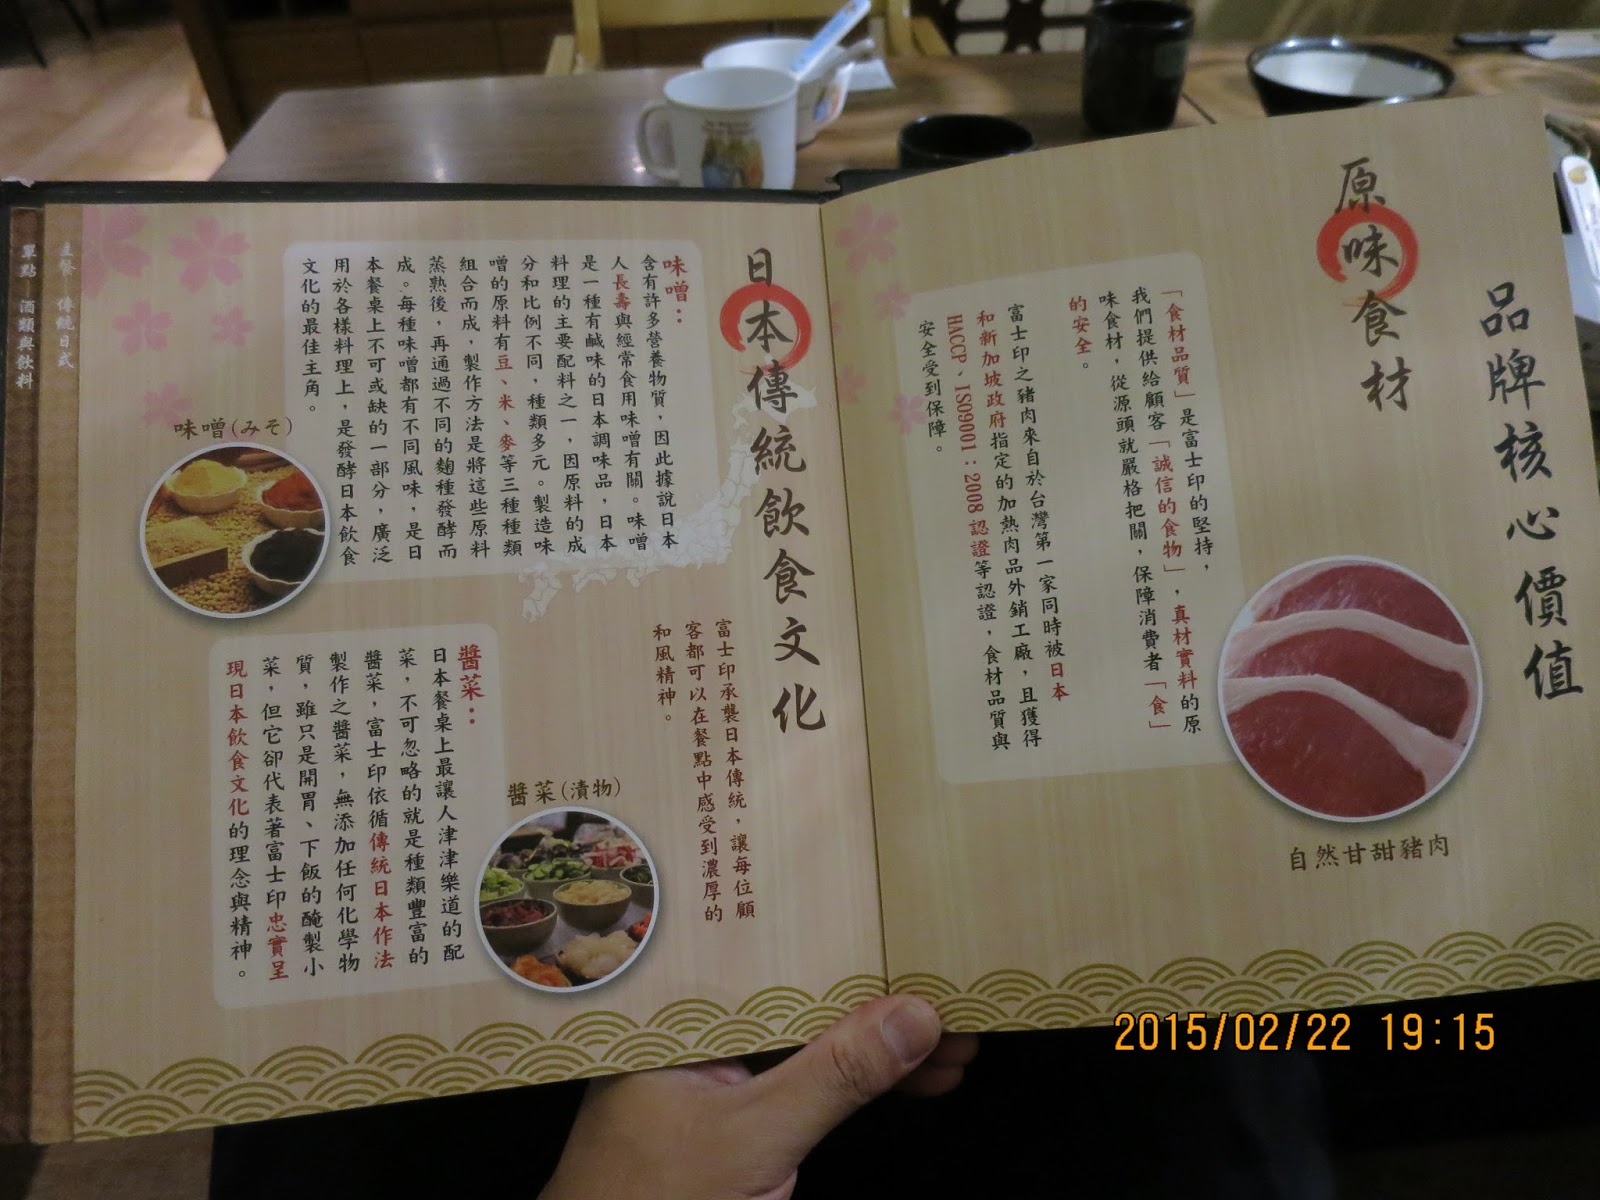 品牌核心價值
原味食材
「食材品質」是富士印的堅持，
我們提供給顧客「誠信的食物」，真材實料的原
味食材，從源頭就嚴格把關，保障消費者「食」
的安全。
富士印之豬肉來自於台灣第一家同時被日本
和新加坡政府指定的加熱肉品外銷工廠，且獲得
HACCP、ISO9001：2008 認證等認證，食材品質與
安全受到保障。
自然甘甜豬肉
日本傳統飲食文化
富士印承襲日本傳統，讓每位顧
客都可以在餐點中感受到濃厚的
和風精神。
味噌：
含有許多營養物質，因此據說日本
人長壽與經常食用味噌有關。味噌
是一種有鹹味的日本調味品，日本
料理的主要配料之一，因原料的成
分和比例不同，種類多元。製造味
噌的原料有豆、米、麥等三種種類
組合而成，製作方法是將這些原料
蒸熟後，再通過不同的麴種發酵而
成。每種味噌都有不同風味，是日
本餐桌上不可或缺的一部分，廣泛
用於各樣料理上，是發酵日本飲食
文化的最佳主角。
味噌(みそ)
醬菜：
日本餐桌上最讓人津津樂道的配
菜，不可忽略的就是種類豐富的
醬菜，富士印依循傳統日本作法
製作之醬菜，無添加任何化學物
質，雖只是開胃、下飯的醃製小
菜，但它卻代表著富士印忠實呈
現日本飲食文化的理念與精神。
醬菜(漬物)
主餐 傳統日式
單點 酒類與飲料
2015/02/22 19:15